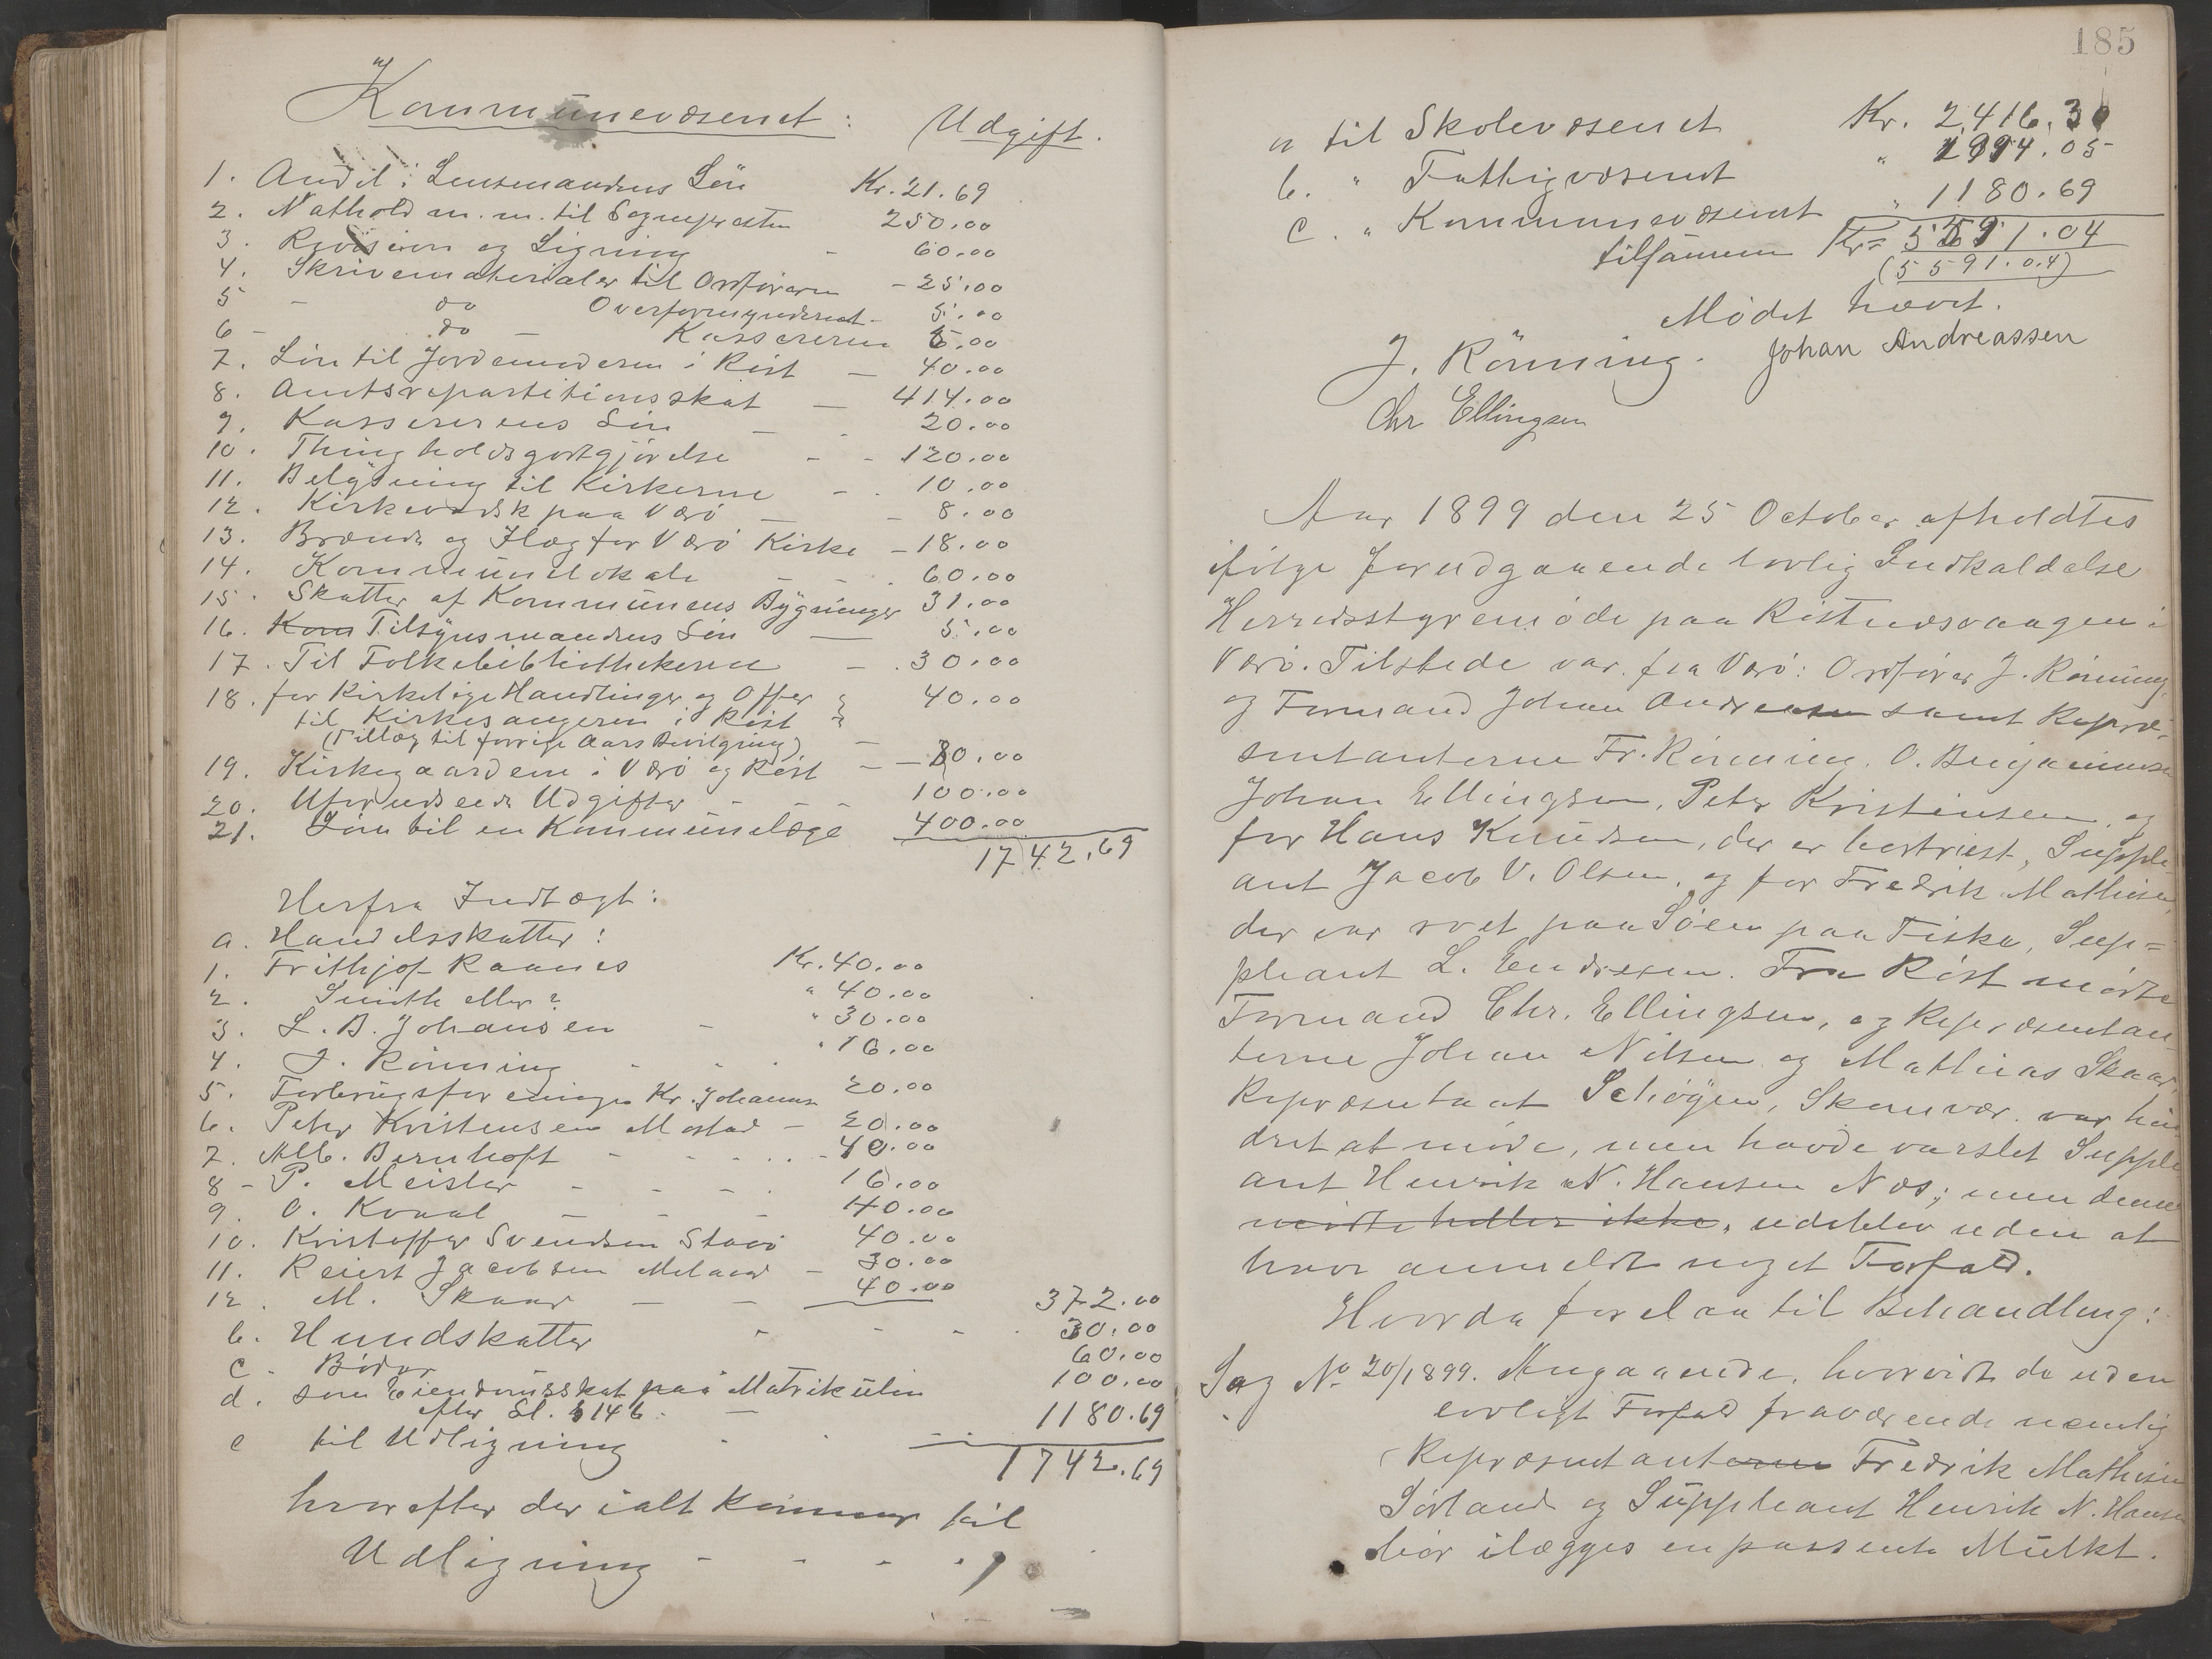 Kommunevæsenet: Udgift.
1. Andel i Lensmandens Løn Kr. 21.69
2. Nathold m.m. til Sognepresten 250.00
3. Revision og Ligning - 60.00
4. Skrivematerialer til Ordføreren - 25.00
5 - do Overformynderiet - 5.00
6 - do - Kassereren 5.00
7. Løn til Jordemoderen i Røst - 40.00
8. Amtsrepartitionsskat - 414.00
9. Kassererens Løn - - 20.00
10. Thingholdsgodtgjørelse - - 120.00
11. Belysning til Kirkerne - . 10.00
12. Kirkevask paa Værø - - 8.00
13. Brænde og Ilæg for Værø Kirke - 18.00
14. Kommunelokale - - . 60.00
15. Skatter af Kommunens Bygninger 31.00
16. Kom Tilsynsmandens Løn - 5.00
17. Til Folkebibliothekerne - . 30.00
18. for Kirkelige Handlinger og Offer 40.00
til Kirkesangeren i Røst
(Tillæg til forrige Aars Bevilgning) -
19. Kirkegaardene i Værø og Røst - - 80.00
20. Uforudseede Udgifter - - - 100.00
21. Løn til en Kommunelæge 400.00
1742.69
Herfra Indtægt:
a. Handelsskatter:
1. Frithjof Raanes Kr. 40.00
2. Smith eller? " 40.00
3. L. B. Johansen - " 30.00
4. J. Rønning - - . " 16.00
5. Forbrugsforeningen Kr. Johansen 20.00
6. Peter Kristensen Mostad - 20.00
7. Alb. Bernhoft - - . . . - 40.00
8 - P. Meister - - - . 16.00
9. O. Kvaal - - - 40.00
10. Kristoffer Svendsen Stavø 40.00
11. Reiert Jacobsen - 30.00
12. M. Skaar - - 40.00 372.00
b. Hundskatter - - - . 30.00
c - Bøder 60.00
d. som Eiendomsskat paa Matrikulen 100.00
efter Sl. § 14 b. -
e til Udligning - . -. 1180.69
1742.69
hvorefter der ialt kommer til
Udligning - - - . ,
185
a til Skolevæsenet Kr. 2,416.30
b. " Fattigvæsenet " 1994.05
c. " Kommunevæsenet " 1180.69
tilsammen Kr = 5591.04
(5591.04)
Mødet hævet.
J. Rönning. Johan Andreassen
Chr Ellingsen
Aar 1899 den 25 October afholdtes
ifølge forudgaaende lovlig Indkaldelse
Herredsstyremøde paa Røstnesvaagen i
Værø. Tilstede var fra Værø: Ordfører J. Rønning,
og Formand Johan Andreassen samt Repræ-
sentanterne Fr. Rønning, O. Benjaminsen
Johan Ellingsen, Peter Kristensen, og
for Hans Knudsen, der er bortreist, Supple-
ant Jacob V. Olsen, og for Fredrik Mathisen,
der var roet paa Søen paa Fiske, Sup=
pleant L. Endresen. Fra Røst mødte
Formand Chr. Ellingsen, og Repræsentan-
terne Johan Nilsen og Mathias Skaar,
Repræsentant Schøyen, Skomvær var hin
dret at møde, men havde varslet Supple
ant Henrik N. Hansen Næs; men denne
mødte heller ikke, udeblev uden at
have anmeldt noget Forfald.
Hvorda forelaa til Behandling:
Sag No 20/1899. Angaaende, hvorvidt de uden
lovligt Forfald fraværende nemlig
Repræsentanterne Fredrik Mathisen
Sørland og Suppleant Henrik N. Hansen
bør ilægges en passende Mulkt.